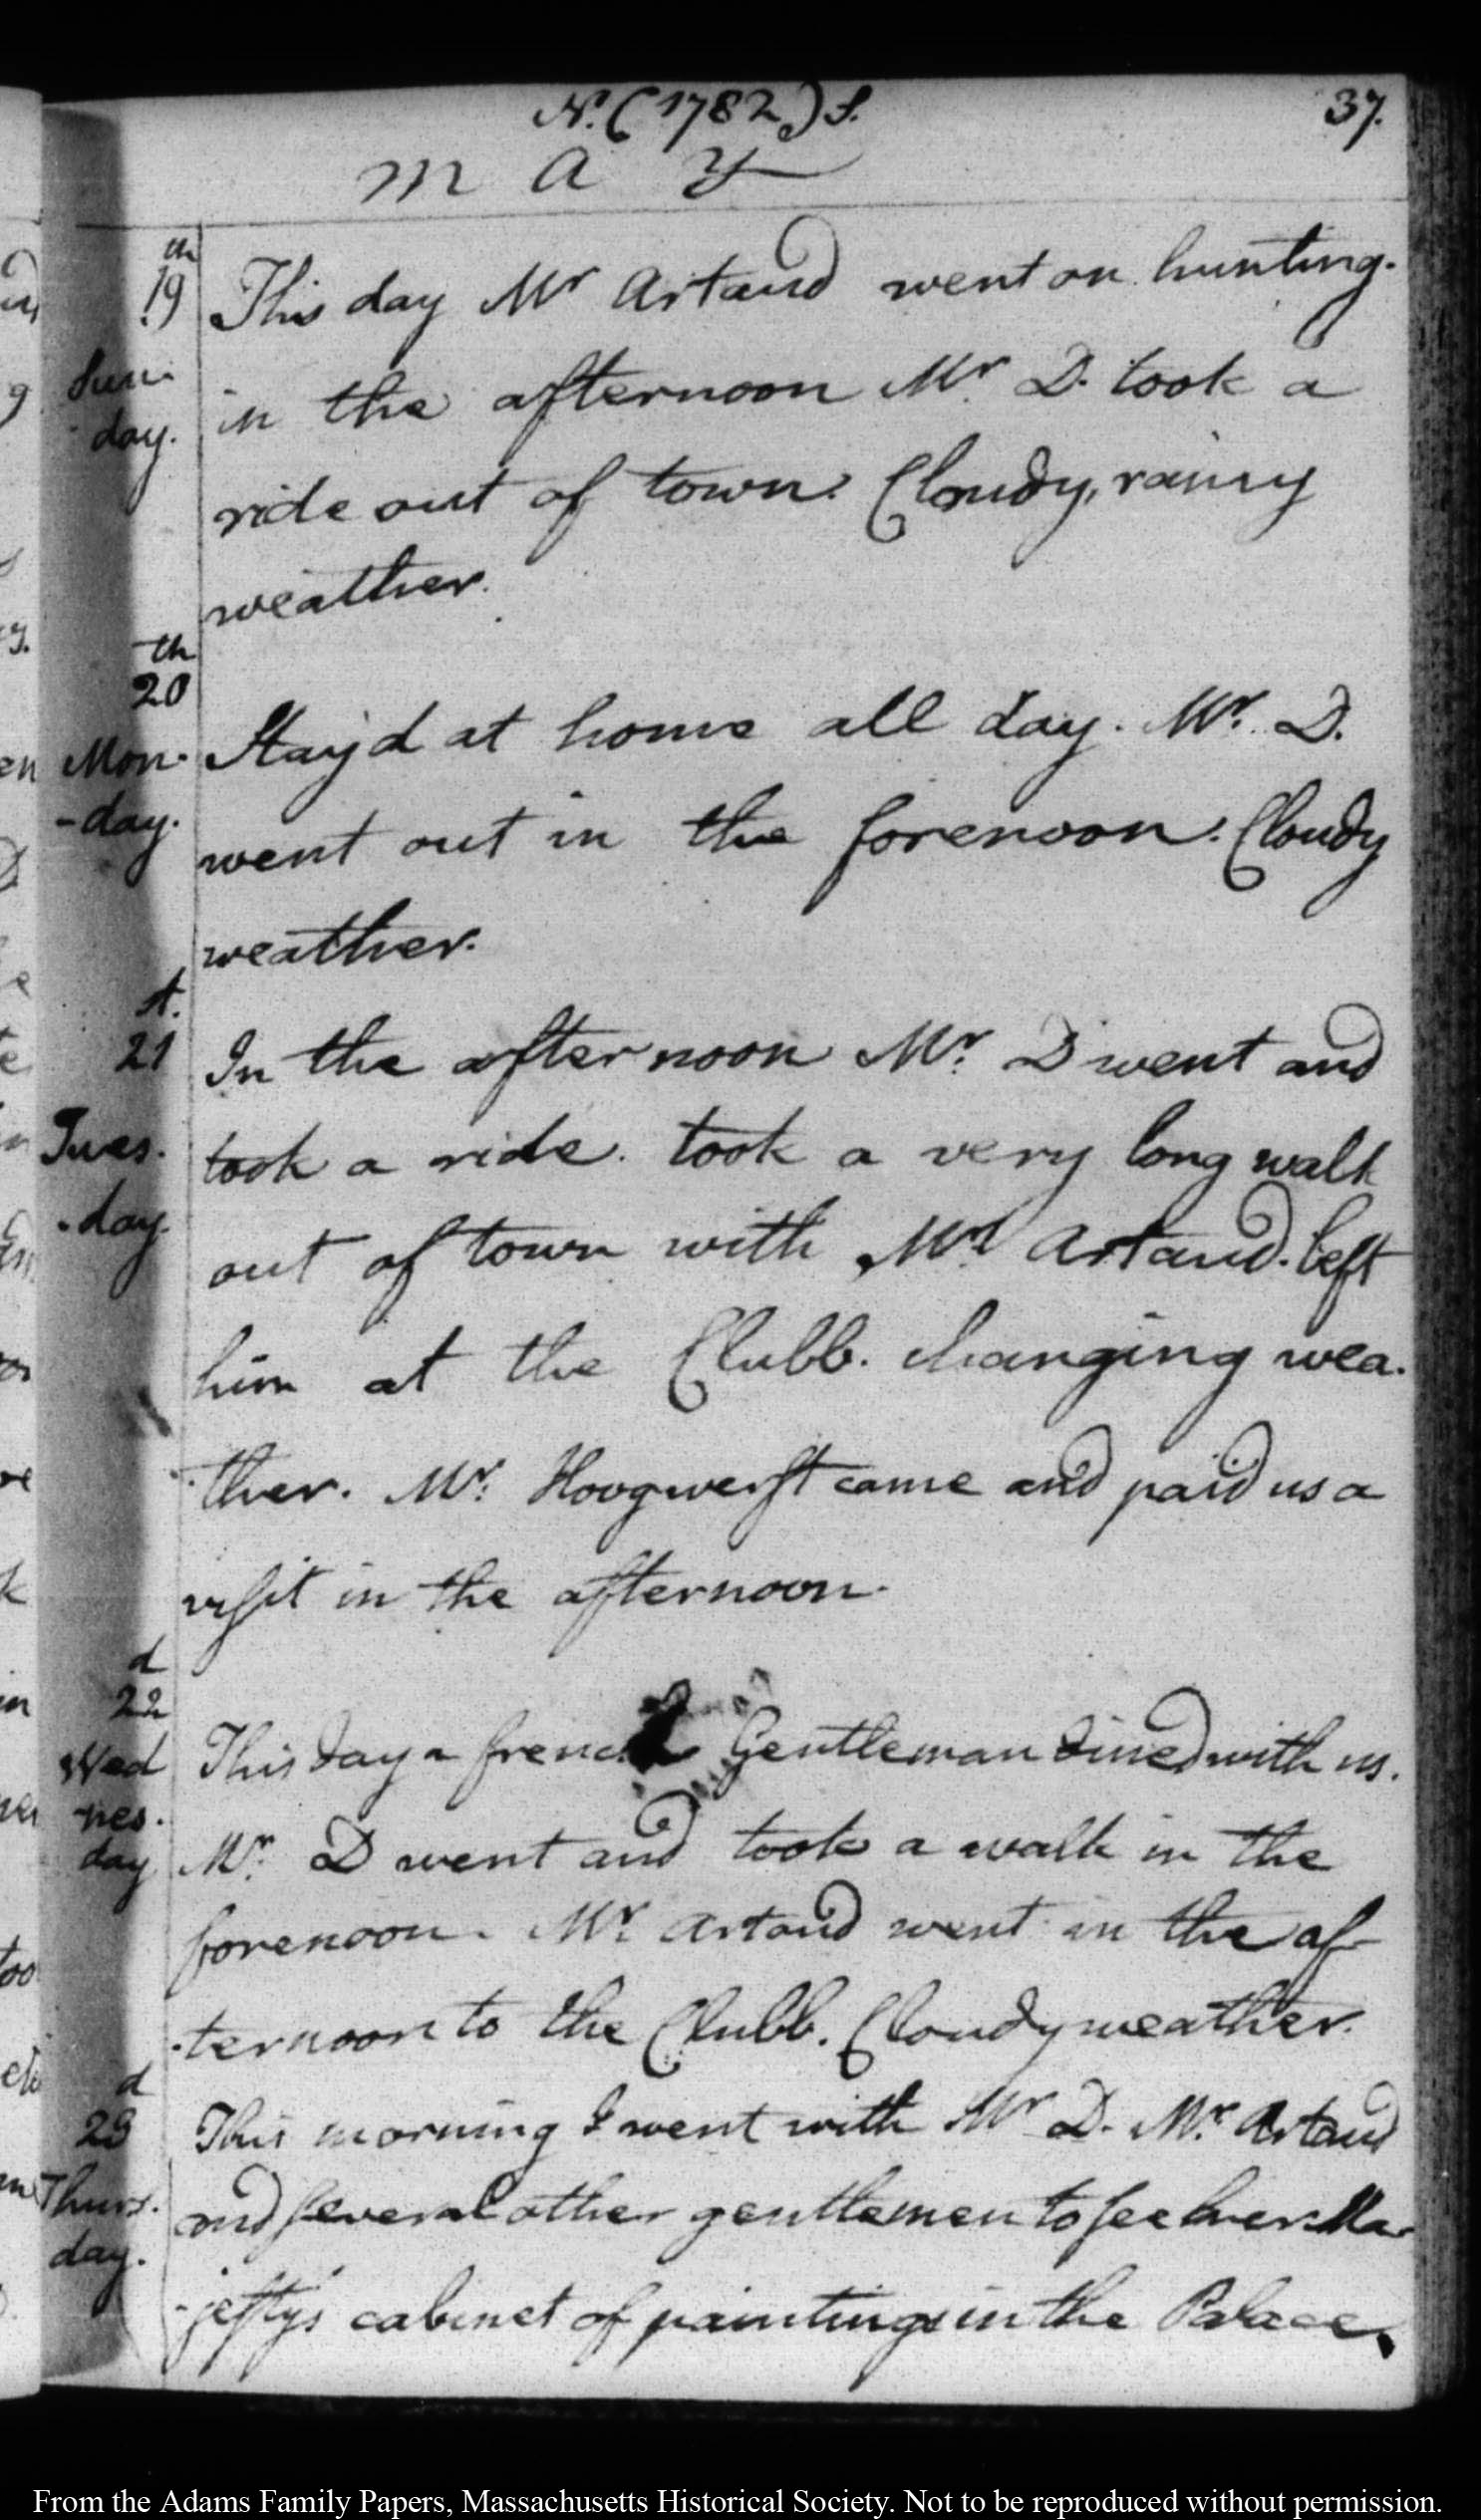 N. (1782.) S. 37.
M A Y
th
19 This day Mr Artaud went on hunting.
Sun- in the afternoon Mr. D. took a
day. ride out of town. Cloudy, rainy
weather.
th
20
Mon- Stay'd at home all day. Mr. D.
-day. went out in the forenoon. Cloudy
weather.
st.
21 In the afternoon Mr. D went and
Tues- took a ride. took a very long walk
-day. out of town with Mr. Artaud. left
him at the Clubb. changing wea-
-ther. Mr. Hoogwerft came and paid us a
visit in the afternoon.
d
22
Wed This day a french Gentleman dined with us.
-nes-
day Mr. D went and took a walk in the
forenoon. Mr. Artaud went in the af-
-ternoon to the Clubb. Cloudy weather.
d
23 This morning I went with Mr D. Mr. Artaud
Thurs- and several other gentlemen to see her Ma-
day. -jesty's cabinet of paintings in the Palace,
From the Adams Family Papers, Massachusetts Historical Society. Not to be reproduced without permission.